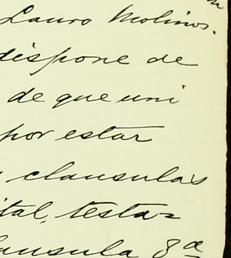 Lauro Molinos.
dispone de
de que uni
por estar
clausulas
ital, testa=
lausula 8ª